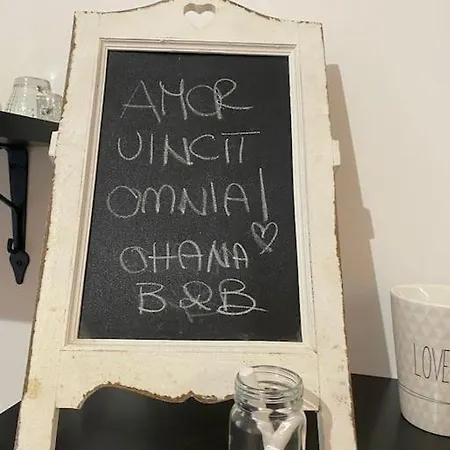 AMOR
VINCIT
OMNIA!
OHANA
B&B
LOVE